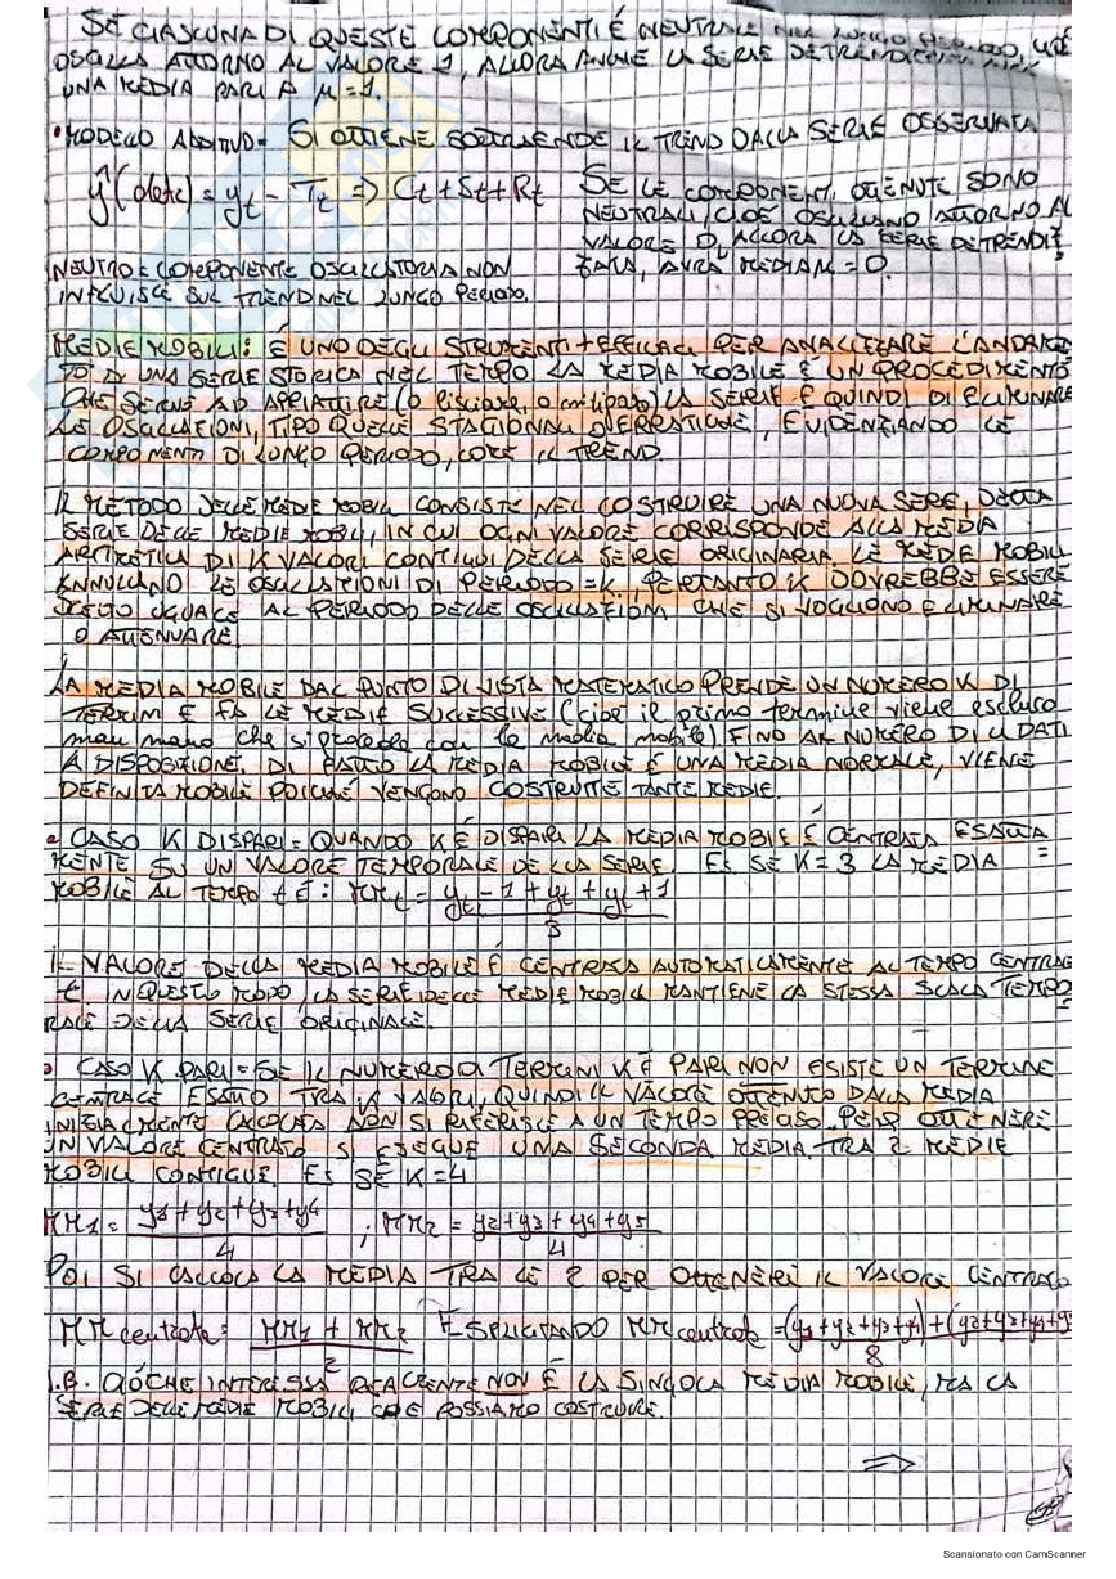 SE CIASCUNA DI QUESTE COMPONENTI É NEUTRALE NEL LUNGO PERIODO, CIOÈ
OSCILLA ATTORNO AL VALORE 1, ALLORA ANCHE LA SERIE DETRENDIZZATA AVRÀ
UNA MEDIA PARI A µ=1.
• MODELLO ADDITIVO = SI OTTIENE SOTTRAENDE IL TREND DALLA SERIE OSSERVATA
ŷ(detr) = yt - Tt => Ct + St + Rt
SE LE COMPONENTI OTTENUTE SONO
NEUTRALI, CIOÉ OSCILLANO ATTORNO AL
VALORE 0, ALLORA LA SERIE DETRENDIZ
ZATA, AVRÀ MEDIA µ = 0.
NEUTRO È COMPONENTE OSCILLATORIA NON
INFLUISCE SUL TREND NEL LUNGO PERIODO.
MEDIE MOBILI: É UNO DEGLI STRUMENTI + EFFICACI PER ANALIZZARE L'ANDAMEN
TO DI UNA SERIE STORICA NEL TEMPO. LA MEDIA MOBILE É UN PROCEDIMENTO
CHE SERVE AD APPIATTIRE (O lisciare, o ) LA SERIE E QUINDI DI ELIMINARE
LE OSCILLAZIONI, TIPO QUELLE STAGIONALI O ERRATICHE, EVIDENZIANDO LE
COMPONENTI DI LUNGO PERIODO, COME IL TREND.
IL METODO DELLE MEDIE MOBILI CONSISTE NEL COSTRUIRE UNA NUOVA SERIE, DETTA
SERIE DELLE MEDIE MOBILI, IN CUI OGNI VALORE CORRISPONDE ALLA MEDIA
ARITMETICA DI K VALORI CONTIGUI DELLA SERIE ORIGINARIA. LE MEDIE MOBILI
ANNULLANO LE OSCILLAZIONI DI PERIODO = K, PERTANTO K DOVREBBE ESSERE
SCELTO UGUALE AL PERIODO DELLE OSCILLAZIONI CHE SI VOGLIONO ELIMINARE
O ATTENUARE.
LA MEDIA MOBILE DAL PUNTO DI VISTA MATEMATICO PRENDE UN NUMERO K DI
TERMINI E FA LE MEDIE SUCCESSIVE (cioè il primo termine viene escluso
man mano che si procede con la media mobile) FINO AL NUMERO DI DATI
A DISPOSIZIONE. DI FATTO LA MEDIA MOBILE É UNA MEDIA NORMALE, VIENE
DEFINITA MOBILE POICHÉ VENGONO COSTRUITE TANTE MEDIE.
• CASO K DISPARI = QUANDO K É DISPARI LA MEDIA MOBILE É CENTRATA ESATTA
MENTE SU UN VALORE TEMPORALE DELLA SERIE. ES SE K = 3 LA MEDIA
MOBILE AL TEMPO t É: MMt = yt-1 + yt + yt+1
3
IL VALORE DELLA MEDIA MOBILE É CENTRATA AUTOMATICAMENTE AL TEMPO CENTRALE
t. IN QUESTO MODO, LA SERIE DELLE MEDIE MOBILI MANTIENE LA STESSA SCALA TEMPO
RALE DELLA SERIE ORIGINALE.
• CASO K PARI = SE IL NUMERO DI TERMINI K É PARI NON ESISTE UN TERMINE
CENTRALE ESATTO TRA K VALORI, QUINDI IL VALORE OTTENUTO DALLA MEDIA
INIZIALMENTE CALCOLATA NON SI RIFERISCE A UN TEMPO PRECISO. PER OTTENERE
UN VALORE CENTRATO SI ESEGUE UNA SECONDA MEDIA TRA 2 MEDIE
MOBILI CONTIGUE. ES SE K = 4
MM1 = y1 + y2 + y3 + y4 ; MM2 = y2 + y3 + y4 + y5
4 4
POI SI CALCOLA LA MEDIA TRA LE 2 PER OTTENERE IL VALORE CENTRATO
MM centrata = MM1 + MM2 ESPLICITANDO MM centrata = (y1+y2+y3+y4)+(y2+y3+y4+y5
2 8
N.B. CIÓ CHE INTERESSA REALMENTE NON É LA SINGOLA MEDIA MOBILE, MA LA
SERIE DELLE MEDIE MOBILI CHE POSSIAMO COSTRUIRE.
=>
Scansionato con CamScanner